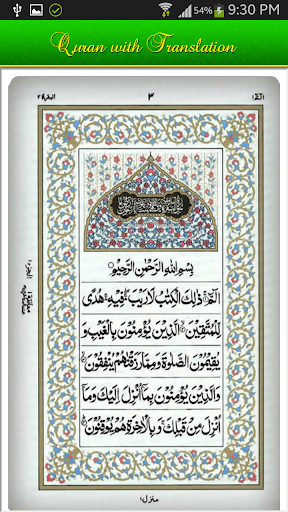 54% 9:30 PM
Quran with Translation
البقرة ٢
٣
بِسْمِ اللهِ الرَّحْمٰنِ الرَّحِيْمِ
الٓمّٓ ۚ ذٰلِكَ الْكِتٰبُ لَا رَيْبَ ۛ فِيْهِ ۛ هُدًى
لِّلْمُتَّقِيْنَ ۙ الَّذِيْنَ يُؤْمِنُوْنَ بِالْغَيْبِ وَ
يُقِيْمُوْنَ الصَّلٰوةَ وَمِمَّا رَزَقْنٰهُمْ يُنْفِقُوْنَ ۙ
وَالَّذِيْنَ يُؤْمِنُوْنَ بِمَآ اُنْزِلَ اِلَيْكَ وَمَآ
اُنْزِلَ مِنْ قَبْلِكَ ۚ وَ بِالْاٰخِرَةِ هُمْ يُوْقِنُوْنَ ؕ
منزل ١